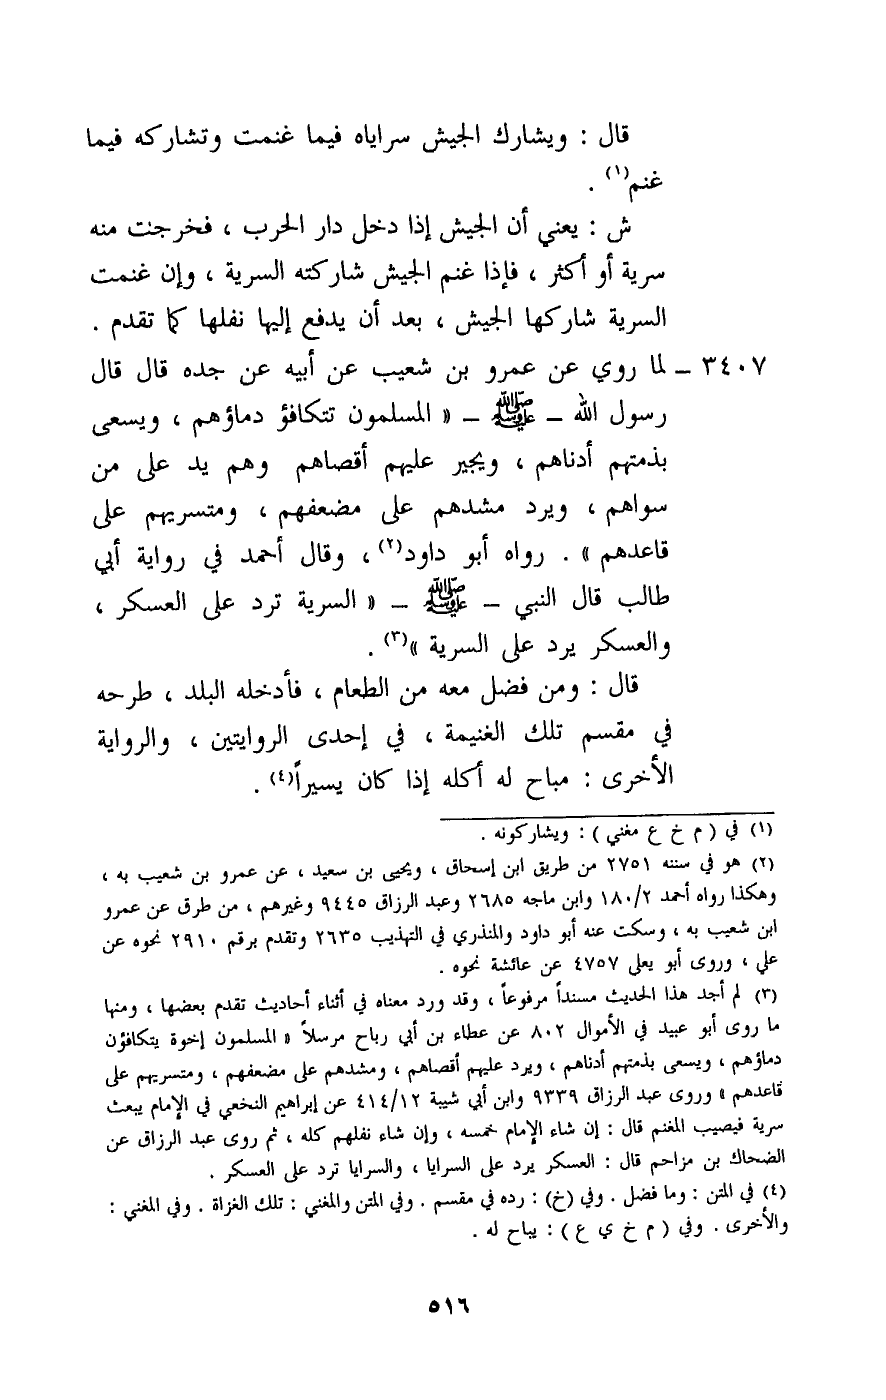 قال : ويشارك الجيش سراياه فيما غنمت وتشاركه فيما
غنم(١) .
ش : يعني أن الجيش إذا دخل دار الحرب ، فخرجت منه
سرية أو أكثر ، فإذا غنم الجيش شاركته السرية ، وإن غنمت
السرية شاركها الجيش ، بعد أن يدفع إليها نفلها كما تقدم .
٣٤٠٧ – لما روي عن عمرو بن شعيب عن أبيه عن جده قال قال
رسول الله – ﷺ – « المسلمون تتكافؤ دماؤهم ، ويسعى
بذمتهم أدناهم ، ويجير عليهم أقصاهم وهم يد على من
سواهم ، ويرد مشدهم على مضعفهم ، ومتسريهم على
قاعدهم » . رواه أبو داود(٢) ، وقال أحمد في رواية أبي
طالب قال النبي – ﷺ – « السرية ترد على العسكر ،
والعسكر يرد على السرية »(٣) .
قال : ومن فضل معه من الطعام ، فأدخله البلد ، طرحه
في مقسم تلك الغنيمة ، في إحدى الروايتين ، والرواية
الأخرى : مباح له أكله إذا كان يسيراً(٤) .
(١) في ( م خ ع مغني ) : ويشاركونه .
(٢) هو في سننه ٢٧٥١ من طريق ابن إسحاق ، ويحيى بن سعيد ، عن عمرو بن شعيب به ،
وهكذا رواه أحمد ١٨٠/٢ وابن ماجه ٢٦٨٥ وعبد الرزاق ٩٤٤٥ وغيرهم ، من طرق عن عمرو
ابن شعيب به ، وسكت عنه أبو داود والمنذري في التهذيب ٢٦٣٥ وتقدم برقم ٢٩١٠ نحوه عن
علي ، وروى أبو يعلى ٤٧٥٧ عن عائشة نحوه .
(٣) لم أجد هذا الحديث مسنداً مرفوعاً ، وقد ورد معناه في أثناء أحاديث تقدم بعضها ، ومنها
ما روى أبو عبيد في الأموال ٨٠٢ عن عطاء بن أبي رباح مرسلاً « المسلمون إخوة يتكافؤن
دماؤهم ، ويسعى بذمتهم أدناهم ، ويرد عليهم أقصاهم ، ومشدهم على مضعفهم ، ومتسريهم على
قاعدهم » وروى عبد الرزاق ٩٣٣٩ وابن أبي شيبة ٤١٤/١٢ عن إبراهيم النخعي في الإمام يبعث
سرية فيصيب المغنم قال : إن شاء الإمام خمسه ، وإن شاء نفلهم كله ، ثم روى عبد الرزاق عن
الضحاك بن مزاحم قال : العسكر يرد على السرايا ، والسرايا ترد على العسكر .
(٤) في المتن : وما فضل . وفي (خ) : رده في مقسم . وفي المتن والمغني : تلك الغزاة . وفي المغني :
والأخرى . وفي ( م خ ي ع ) : يباح له .
٥١٦